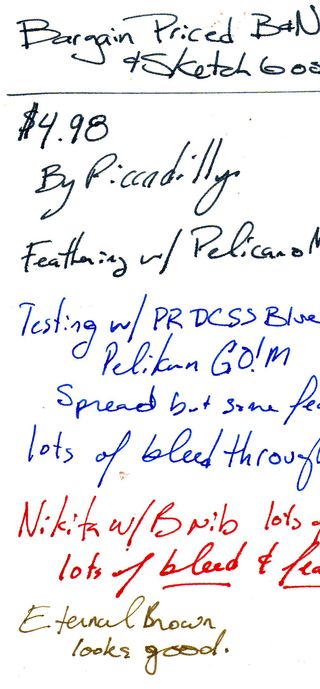 Bargain Priced B&N
& Sketch
$4.98
By Piccadilly
Feathering w/ Pelikano M
Testing w/ PR DCSS Blue
Pelikan GO! M
Spread but some fea
lots of bleed through
Nikita w/ B nib lots o
lots of bleed & fea
Eternal Brown
looks good.